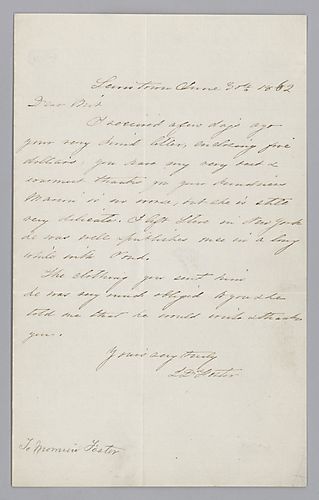 Lewistown June 30th 1862
Dear Bro.
I received a few days ago
your very kind letter, enclosing five
dollars. you have my very best &
warmest thanks for your kindness
Marion is no worse, but she is still
very delicate. I left Steve in New York
he was well & publishes once in a long
while with Pond.
The clothing you sent him
he was very much obliged to you & he
told me that he would write & thank
you.
Yours very truly
Foster
To Morrison Foster